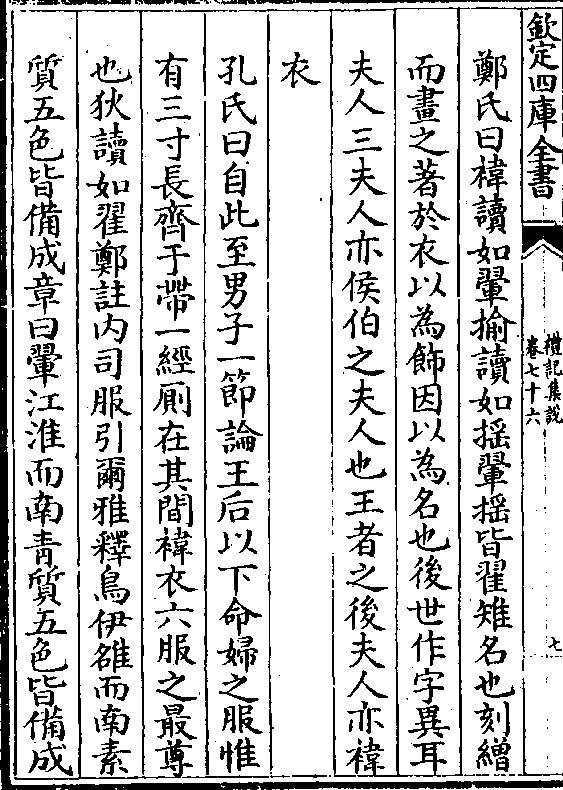 欽定四庫全書
禮記集說
卷七十六
七
鄭氏曰褘讀如翬揄讀如揺翬揺皆翟雉名也刻繒
而畫之著於衣以為飾因以為名也後世作字異耳
夫人三夫人亦侯伯之夫人也王者之後夫人亦褘
衣
孔氏曰自此至男子一節論王后以下命婦之服惟
有三寸長齊于帶一經厠在其間褘衣六服之最尊
也狄讀如翟鄭註内司服引爾雅釋鳥伊雒而南素
質五色皆備成章曰翬江淮而南青質五色皆備成